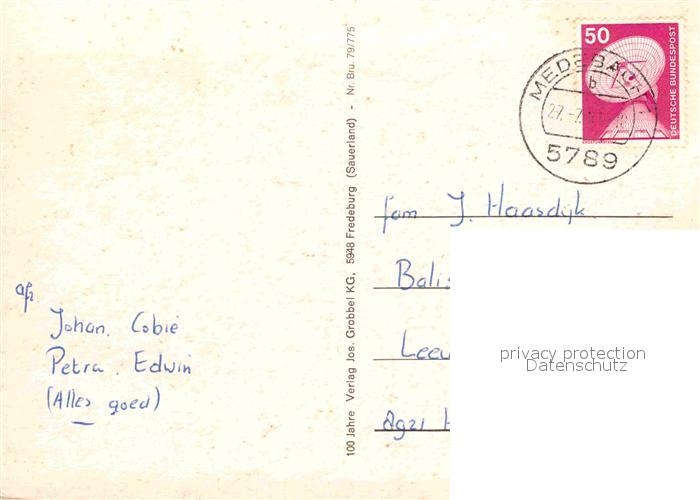 50
DEUTSCHE BUNDESPOST
MEDEBACH
b
27.-7.
5789
100 Jahre Verlag Jos. Grobbel KG, 5948 Fredeburg (Sauerland) - Nr. Bru. 79/775
fam J. Haasdijk
afz.
Johan. Cobie
Petra. Edwin
(Alles goed)
privacy protection
Datenschutz